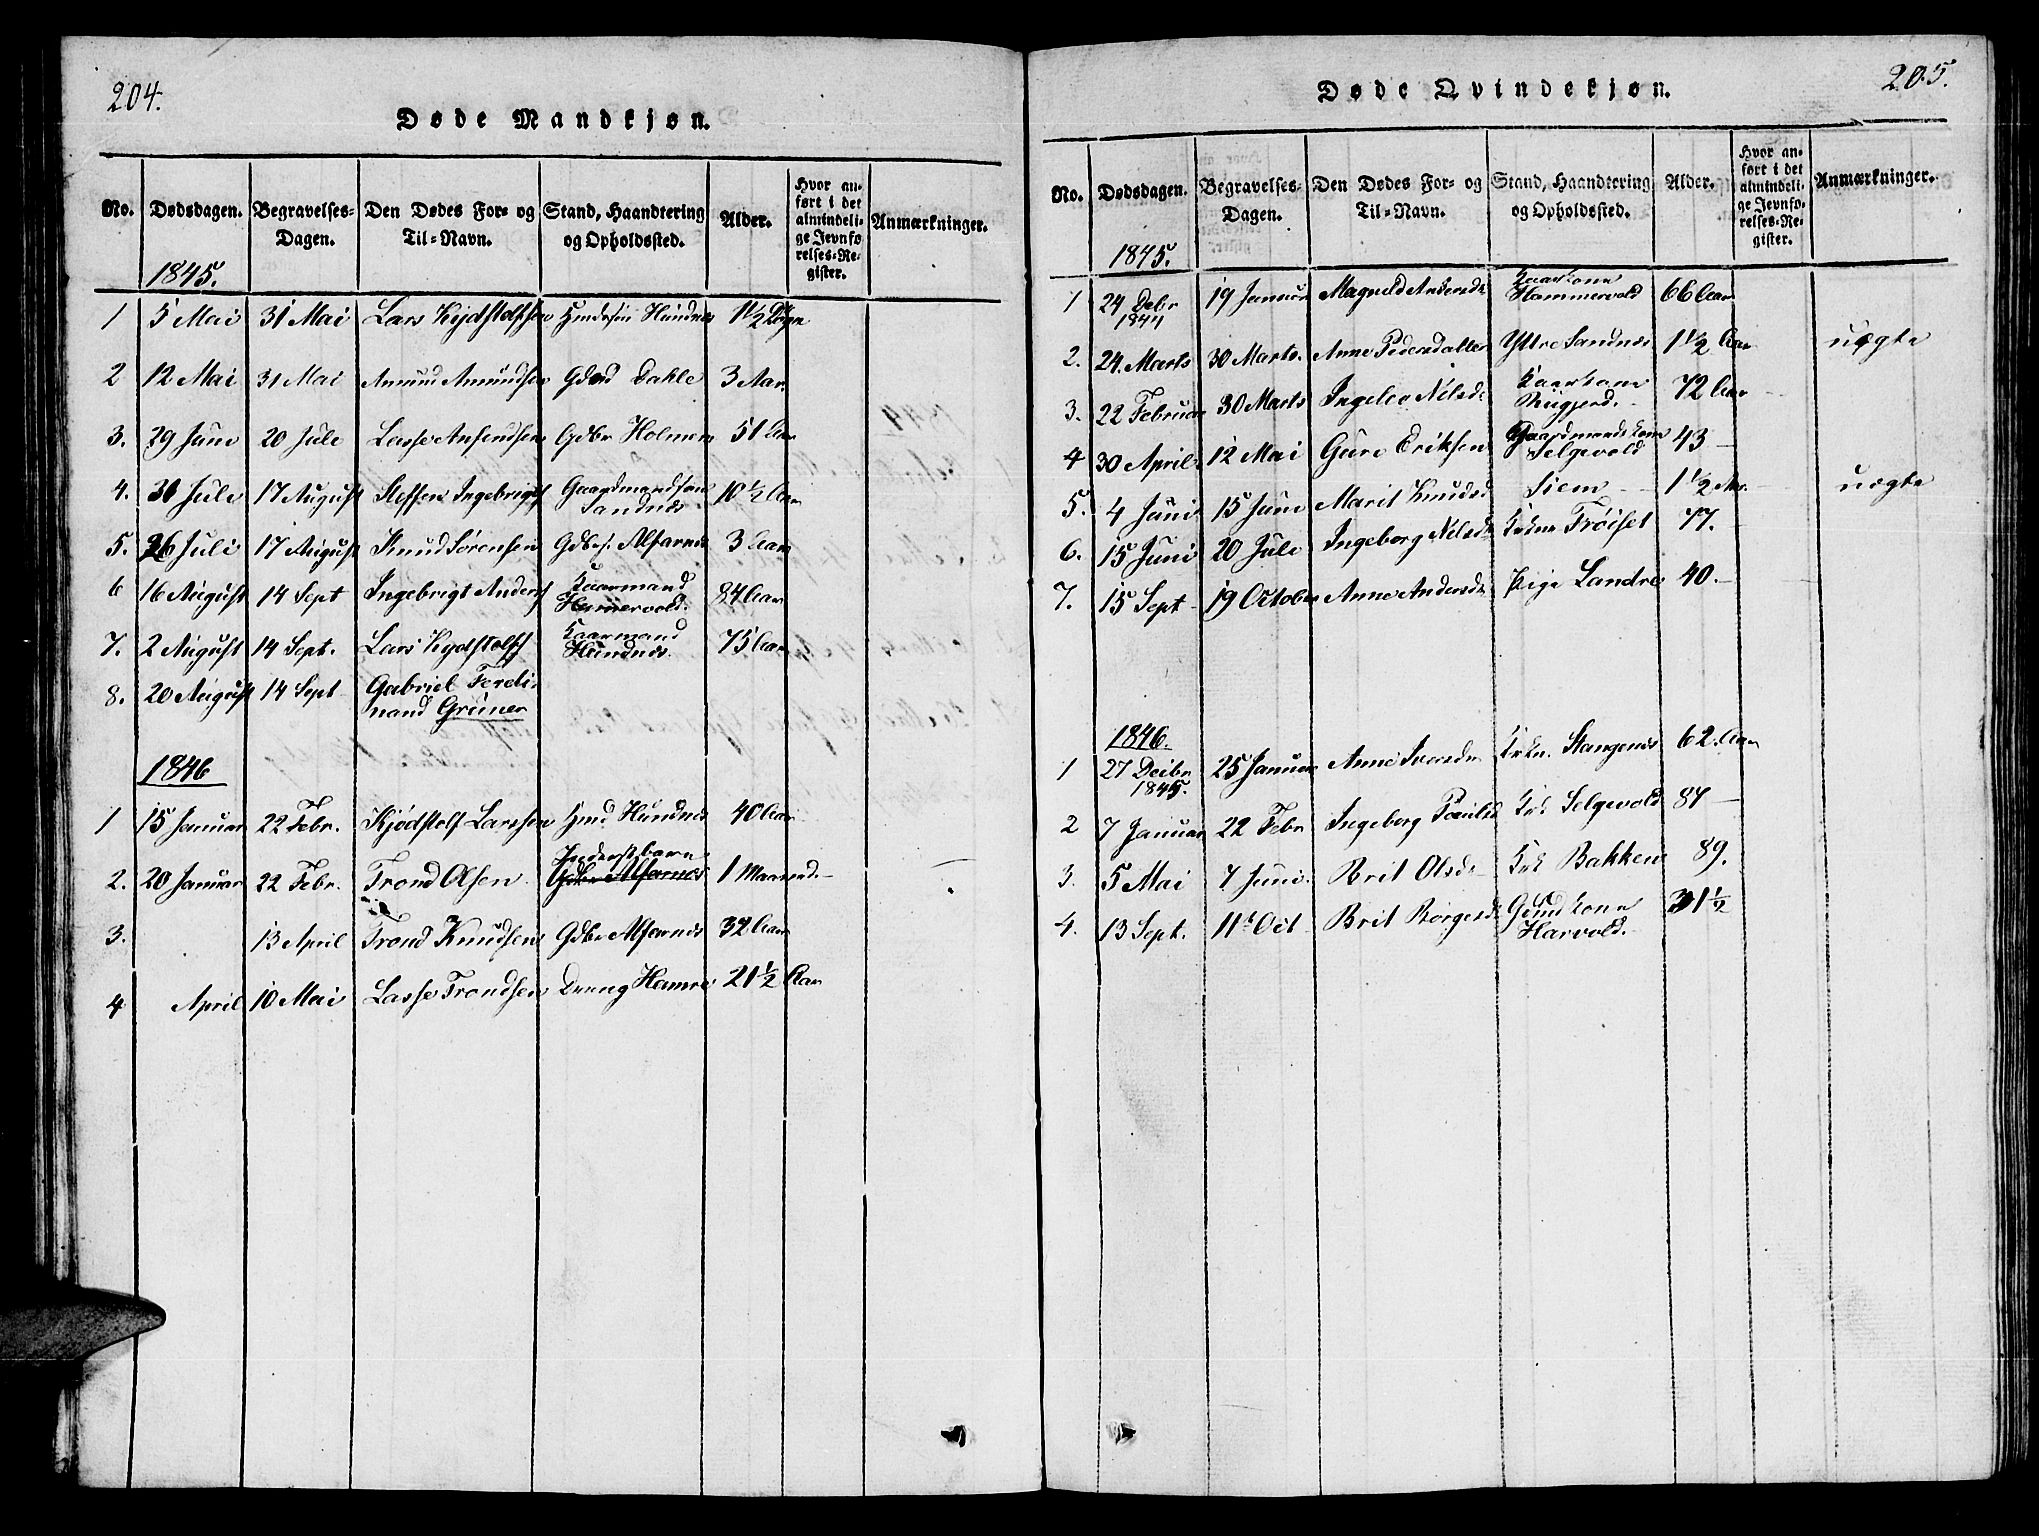 204.
Døde Mandkjøn.
No. Dødsdagen. Begravelses-Dagen. Den Dødes For- og Til-Navn. Stand, Haandtering og Opholdssted. Alder. Hvor anført i det almindelige Jevnførelses-Register. Anmærkninger.
1845.
1 5 Mai 31 Mai Lars Kydstolfsen Hundnes 1 1/2 Døgn
2 12 Mai 31 Mai Amund Amundsen Dahle 3 Aar
3. 29 Juni 20 Juli Lasse Gdbr Holmen 51 Aar
4. 31 Juli 17 August Steffen Ingebrigts Gaardmandsøn Sandnes 10 1/2 Aar
5. 26 Juli 17 August Knud Sørensen Alfarnes 3 Aar
6 16 August 14 Sept Ingebrigt Anders Kaarmand Hammervold. 84 Aar
7. 2 August 14 Sept. Lars Kydstolfs Kaarmand Hundnes. 75 Aar
8. 20 August 14 Sept Gabriel Ferdi-
nand Grüner
1846
1 15 Januar 22 Febr. Kjødstolf Larssen Hmd Hundnes 40 Aar
2. 20 Januar 22 Febr. Trond Olsen Inderstbarn Gdbr Alfarnes 1 Maaned.
3. 13 April Trond Knudsen Gdbr Alfarnes 32 Aar
4 April 10 Mai Lasse Trondsen Dreng Hamre 21 1/2 Aar
205.
Døde Qvindekjøn.
No. Dødsdagen. Begravelses-Dagen. Den Dødes For- og Til-Navn. Stand, Haandtering og Opholdssted. Alder. Hvor anført i det almindelige Jevnførelses-Register. Anmærkninger.
1845.
1 24 Debr 1844 19 Januar Magnild Andersdr Kaarkone Hammervold 66 Aar
2. 24. Marts 30 Marts. Anne Pedersdatter Yttre Sandnes 1 1/2 Aar uægte
3. 22 Februar 30 Marts Ingelev Nilsdr Kaarkone 72 Aar
4 30 April 12 Mai Guro Eriksen Gaardmandskone Selgevold 43 —
5. 4 Juni 15 Juni Marit Knudsd Siem 1 1/2 Aar. uægte
6. 15 Juni 20 Juli Ingeborg Nilsdr Trøiset 77.
7. 15 Sept 19 October Anne Andersdr Pige Landre 40. —
1846.
1 27 Decbr 1845. 25 Januar Anne Iversdr Stangenes 62. Aar
2 7 Januar 22 Febr Ingeborg Poulsd Selgevold 87 —
3. 5 Mai 7 Juni. Brit Olsdr Bakken 89.
4. 13 Sept. 11te Oct Brit Børgesdr Gmd kone Harvold. 31 1/2